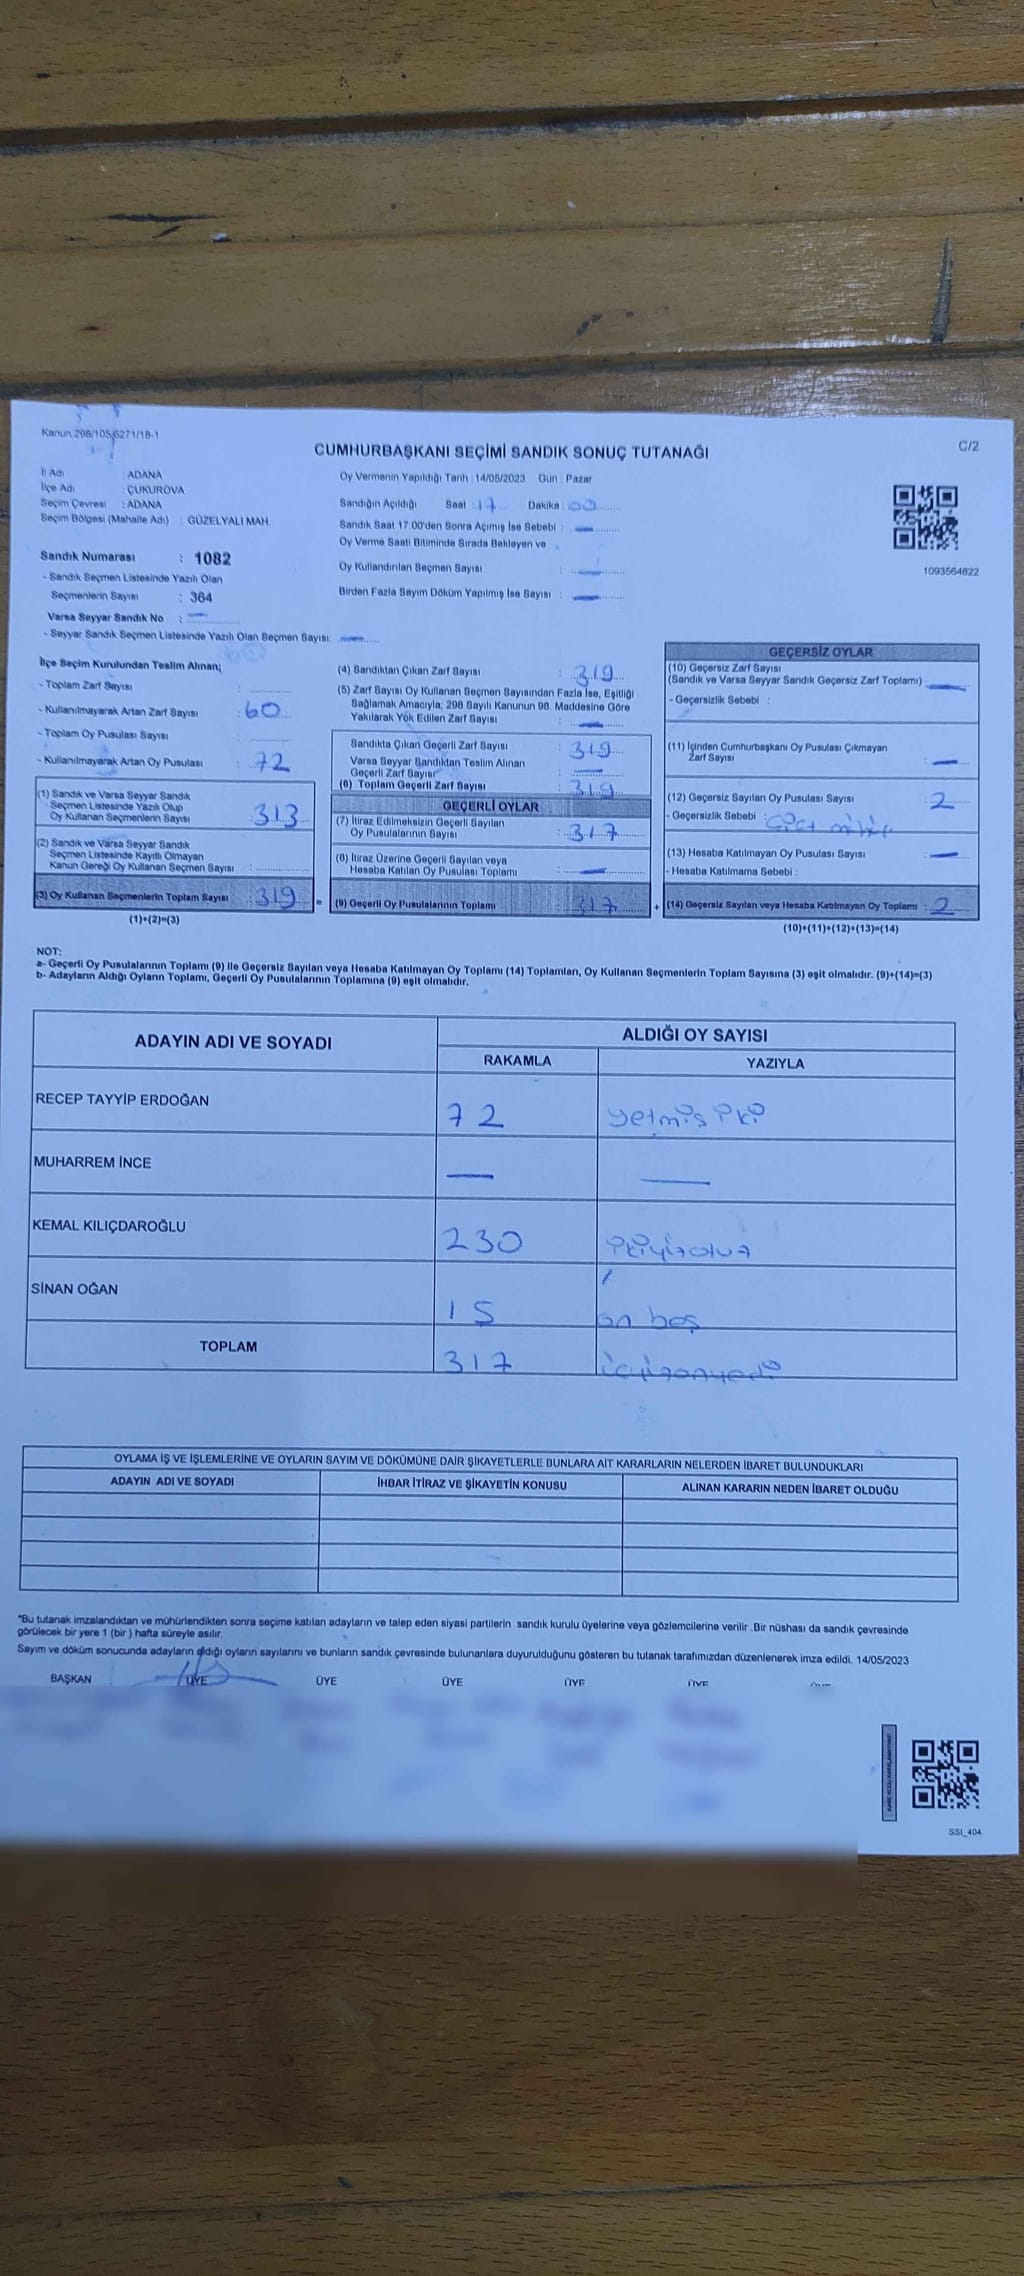 Kanun 298/105,6271/18-1
C/2
CUMHURBAŞKANI SEÇİMİ SANDIK SONUÇ TUTANAĞI
İl Adı : ADANA
İlçe Adı : ÇUKUROVA
Seçim Çevresi : ADANA
Seçim Bölgesi (Mahalle Adı) : GÜZELYALI MAH.
Sandık Numarası : 1082
- Sandık Seçmen Listesinde Yazılı Olan
Seçmenlerin Sayısı : 364
Varsa Seyyar Sandık No : —
- Seyyar Sandık Seçmen Listesinde Yazılı Olan Seçmen Sayısı: —
Oy Vermenin Yapıldığı Tarih : 14/05/2023 Gün : Pazar
Sandığın Açıldığı Saat : 17 Dakika : 00
Sandık Saat 17:00'den Sonra Açımış İse Sebebi : —
Oy Verme Saati Bitiminde Sırada Bekleyen ve
Oy Kullandırılan Seçmen Sayısı : —
Birden Fazla Sayım Döküm Yapılmış İse Sayısı : —
1093564822
İlçe Seçim Kurulundan Teslim Alınan;
- Toplam Zarf Sayısı :
- Kullanılmayarak Artan Zarf Sayısı : 60
- Toplam Oy Pusulası Sayısı :
- Kullanılmayarak Artan Oy Pusulası : 72
(1) Sandık ve Varsa Seyyar Sandık
Seçmen Listesinde Yazılı Olup
Oy Kullanan Seçmenlerin Sayısı : 313
(2) Sandık ve Varsa Seyyar Sandık
Seçmen Listesinde Kayıtlı Olmayan
Kanun Gereği Oy Kullanan Seçmen Sayısı :
(3) Oy Kullanan Seçmenlerin Toplam Sayısı : 319 =
(1)+(2)=(3)
(4) Sandıktan Çıkan Zarf Sayısı : 319
(5) Zarf Sayısı Oy Kullanan Seçmen Sayısından Fazla İse, Eşitliği
Sağlamak Amacıyla; 298 Sayılı Kanunun 98. Maddesine Göre
Yakılarak Yok Edilen Zarf Sayısı : —
Sandıkta Çıkan Geçerli Zarf Sayısı : 319
Varsa Seyyar Sandıktan Teslim Alınan
Geçerli Zarf Sayısı : —
(6) Toplam Geçerli Zarf Sayısı : 319
GEÇERLİ OYLAR
(7) İtiraz Edilmeksizin Geçerli Sayılan
Oy Pusulalarının Sayısı : 317
(8) İtiraz Üzerine Geçerli Sayılan veya
Hesaba Katılan Oy Pusulası Toplamı : —
(9) Geçerli Oy Pusulalarının Toplamı : 317 +
GEÇERSİZ OYLAR
(10) Geçersiz Zarf Sayısı
(Sandık ve Varsa Seyyar Sandık Geçersiz Zarf Toplamı) : —
- Geçersizlik Sebebi :
(11) İçinden Cumhurbaşkanı Oy Pusulası Çıkmayan
Zarf Sayısı : —
(12) Geçersiz Sayılan Oy Pusulası Sayısı : 2
- Geçersizlik Sebebi :
(13) Hesaba Katılmayan Oy Pusulası Sayısı : —
- Hesaba Katılmama Sebebi :
(14) Geçersiz Sayılan veya Hesaba Katılmayan Oy Toplamı : 2
(10)+(11)+(12)+(13)=(14)
NOT:
a- Geçerli Oy Pusulalarının Toplamı (9) ile Geçersiz Sayılan veya Hesaba Katılmayan Oy Toplamı (14) Toplamları, Oy Kullanan Seçmenlerin Toplam Sayısına (3) eşit olmalıdır. (9)+(14)=(3)
b- Adayların Aldığı Oyların Toplamı, Geçerli Oy Pusulalarının Toplamına (9) eşit olmalıdır.
ADAYIN ADI VE SOYADI ALDIĞI OY SAYISI
RAKAMLA YAZIYLA
RECEP TAYYİP ERDOĞAN 72 yetmiş iki
MUHARREM İNCE — —
KEMAL KILIÇDAROĞLU 230 ikiyüzotuz
SİNAN OĞAN 15 on beş
TOPLAM 317 üçyüzonyedi
OYLAMA İŞ VE İŞLEMLERİNE VE OYLARIN SAYIM VE DÖKÜMÜNE DAİR ŞİKAYETLERLE BUNLARA AİT KARARLARIN NELERDEN İBARET BULUNDUKLARI
ADAYIN ADI VE SOYADI İHBAR İTİRAZ VE ŞİKAYETİN KONUSU ALINAN KARARIN NEDEN İBARET OLDUĞU
"Bu tutanak imzalandıktan ve mühürlendikten sonra seçime katılan adayların ve talep eden siyasi partilerin sandık kurulu üyelerine veya gözlemcilerine verilir .Bir nüshası da sandık çevresinde
görülecek bir yere 1 (bir ) hafta süreyle asılır.
Sayım ve döküm sonucunda adayların aldığı oyların sayılarını ve bunların sandık çevresinde bulunanlara duyurulduğunu gösteren bu tutanak tarafımızdan düzenlenerek imza edildi. 14/05/2023
BAŞKAN ÜYE ÜYE ÜYE ÜYE ÜYE
SSI_404